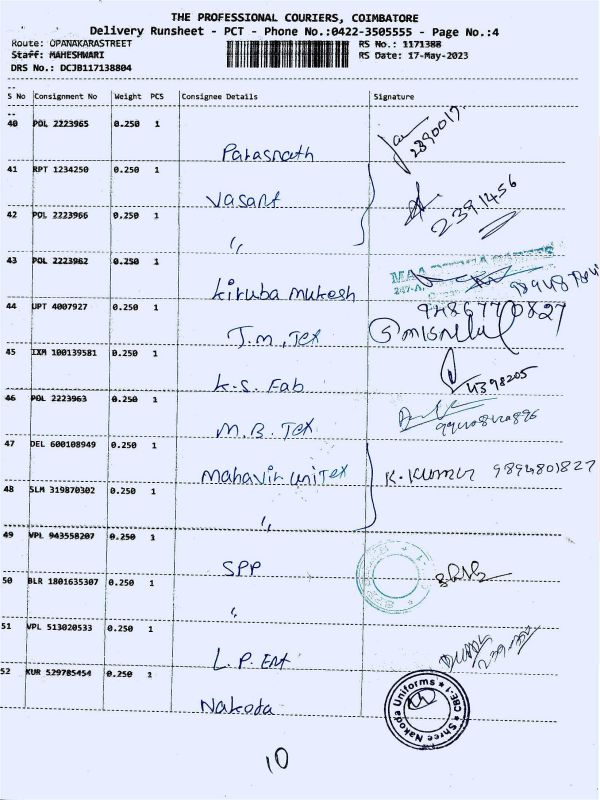 THE PROFESSIONAL COURIERS, COIMBATORE
Delivery Runsheet - PCT - Phone No.:0422-3505555 - Page No.:4
Route: OPANAKARASTREET RS No.: 1171388
Staff: MAHESHWARI RS Date: 17-May-2023
DRS No.: DCJB117138804
S No Consignment No Weight PCS Consignee Details Signature
40 POL 2223965 0.250 1
Parasnath 2890017
41 RPT 1234250 0.250 1
Vasant 2391456
42 POL 2223966 0.250 1
"
43 POL 2223962 0.250 1
Kiruba mukesh
44 UPT 4007927 0.250 1 9486770827
T.M, Tex
45 IXM 100139581 0.250 1
K.S. Fab 4398205
46 POL 2223963 0.250 1
M.B. Tex
47 DEL 600108949 0.250 1
Mahavir unitex K. KUMAR 9894801827
48 SLM 319870302 0.250 1
"
49 VPL 943558207 0.250 1
SPP
50 BLR 1801635307 0.250 1
"
51 VPL 513020533 0.250 1
L.P. Ent
52 KUR 529785454 0.250 1
Nakoda
Shree Nakoda Uniforms ★ CBE-1 ★
10